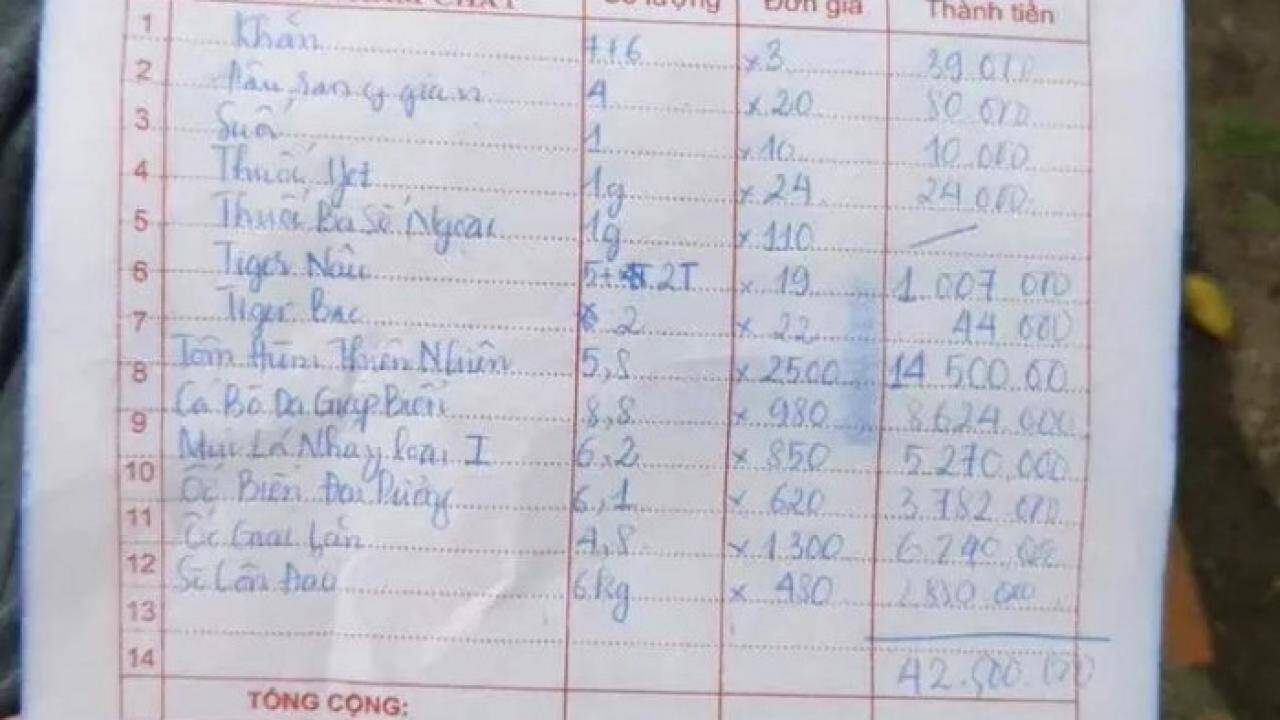 Số lượng Đơn giá Thành tiền
1 Khăn 7+6 x3 39.000
2 Đậu rang 4 x20 80.000
3 Suối 1 x10 10.000
4 Thuốc Jet 1g x24 24.000
5 Thuốc Ba Số Ngoại 1g x110
6 Tiger Nâu 5+ 2T x 19 1.007.000
7 Tiger Bạc 2 x 22 44.000
8 Tôm Hùm Thiên Nhiên 5,8 x 2500 14.500.00
9 Cá Bò Da Giáp Biển 8,8 x 980 8.624.000
10 Mực Lá Nháy loại I 6,2 x 850 5.270.000
11 Ốc Biển Đại Dương 6,1 x 620 3.782.000
12 Ốc Gai Lớn 4,8 x 1.300 6.240.000
13 Sò Lông Đảo 6kg x 480 2.880.000
14 42.500.000
TỔNG CỘNG: